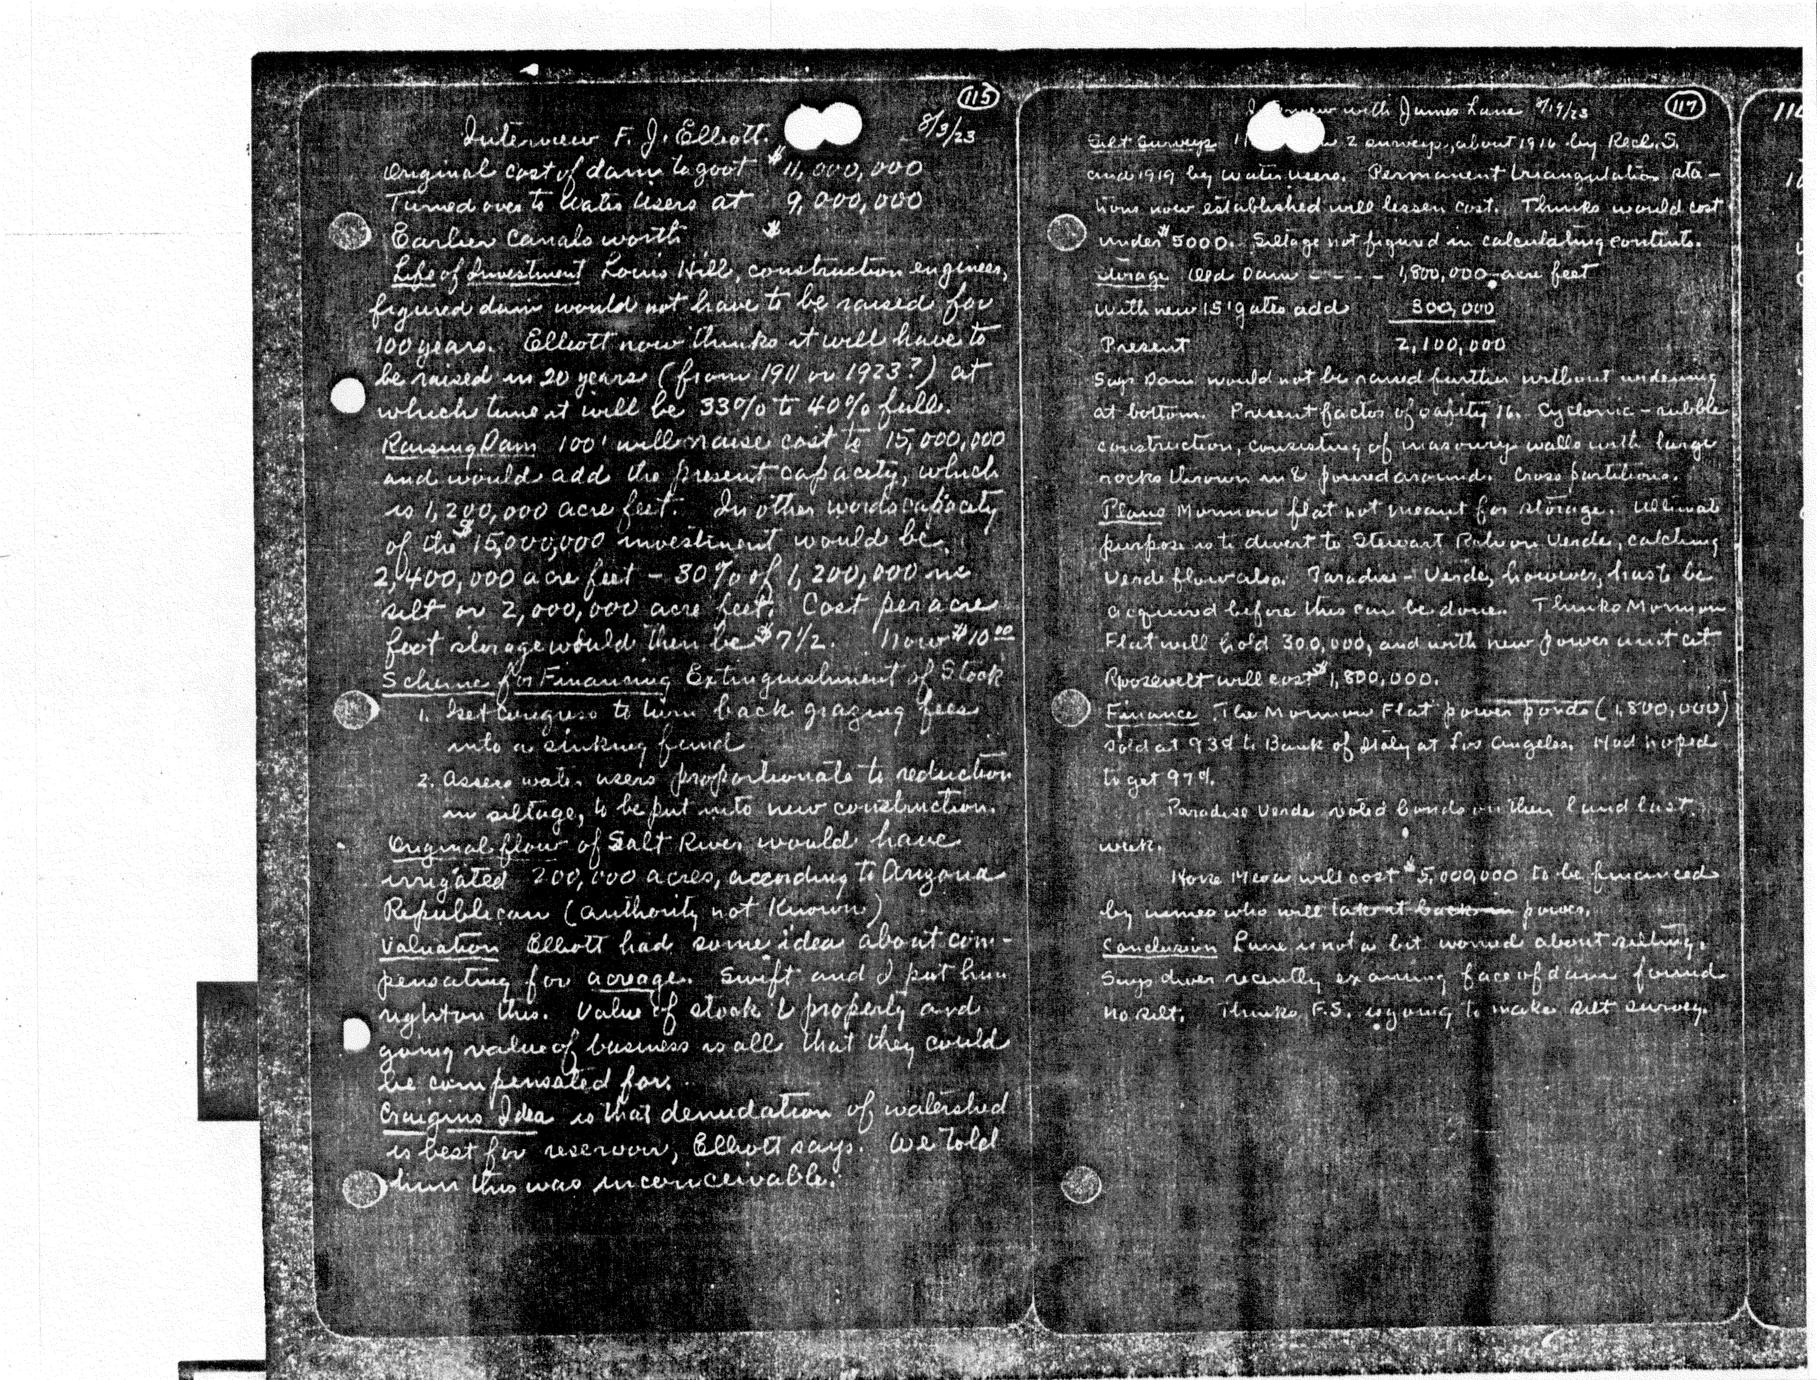 115
8/3/23
Interview F. J. Elliott.
Original cost of dam to govt $11,000,000
Turned over to Water Users at 9,000,000
Earlier canals worth $
Life of Investment Louis Hill, construction engineer,
figured dam would not have to be raised for
100 years. Elliott now thinks it will have to
be raised in 20 years (from 1911 or 1923?) at
which time it will be 33% to 40% full.
Raising Dam 100' will raise cost to 15,000,000
and would add the present capacity, which
is 1,200,000 acre feet. In other words capacity
of the $15,000,000 investment would be
2,400,000 acre feet - 30% of 1,200,000 in
silt or 2,000,000 acre feet. Cost per acre
foot storage would then be $7 1/2. Now $10 00
Scheme for Financing Extinguishment of Stock
1. Get Congress to turn back grazing fees
into a sinking fund
2. Assess water users proportionate to reduction
in siltage, to be put into new construction.
Original flow of Salt River would have
irrigated 200,000 acres, according to Arizona
Republican (authority not known)
Valuation Elliott had some idea about com-
pensating for acreage. Swift and I put him
right on this. Value of stock & property and
going value of business is all that they could
be compensated for.
Craigins Idea is that denudation of watershed
is best for reservoir, Elliott says. We told
him this was inconceivable.
117
Interview with James Lane 8/19/23
Silt Surveys 2 surveys, about 1916 by Recl. S.
and 1919 by water users. Permanent triangulation sta-
tions now established will lessen cost. Thinks would cost
under $5000. Siltage not figured in calculating contents.
Storage Old Dam - - - - 1,800,000 acre feet
With new 15' gates add 300,000
Present 2,100,000
Says Dam would not be raised further without widening
at bottom. Present factor of safety 16. Cyclonic-rubble
construction, consisting of masonry walls with large
rocks thrown in & poured around. Cross partitions.
Plans Mormon flat not meant for storage. Ultimate
purpose is to divert to Stewart Rch on Verde, catching
Verde flow also. Paradise-Verde, however, has to be
acquired before this can be done. Thinks Mormon
Flat will hold 300,000, and with new power unit at
Roosevelt will cost $1,800,000.
Finance The Mormon Flat power ponds (1,800,000)
sold at 93¢ to Bank of Italy at Los Angeles. Had hoped
to get 97¢.
Paradise Verde voted bonds on their land last
week.
Horse Mesa will cost $5,000,000 to be financed
by mines who will take it back in power.
Conclusion Lane is not a bit worried about silting.
Says diver recently examing face of dam found
no silt. Thinks F.S. is going to make silt survey.